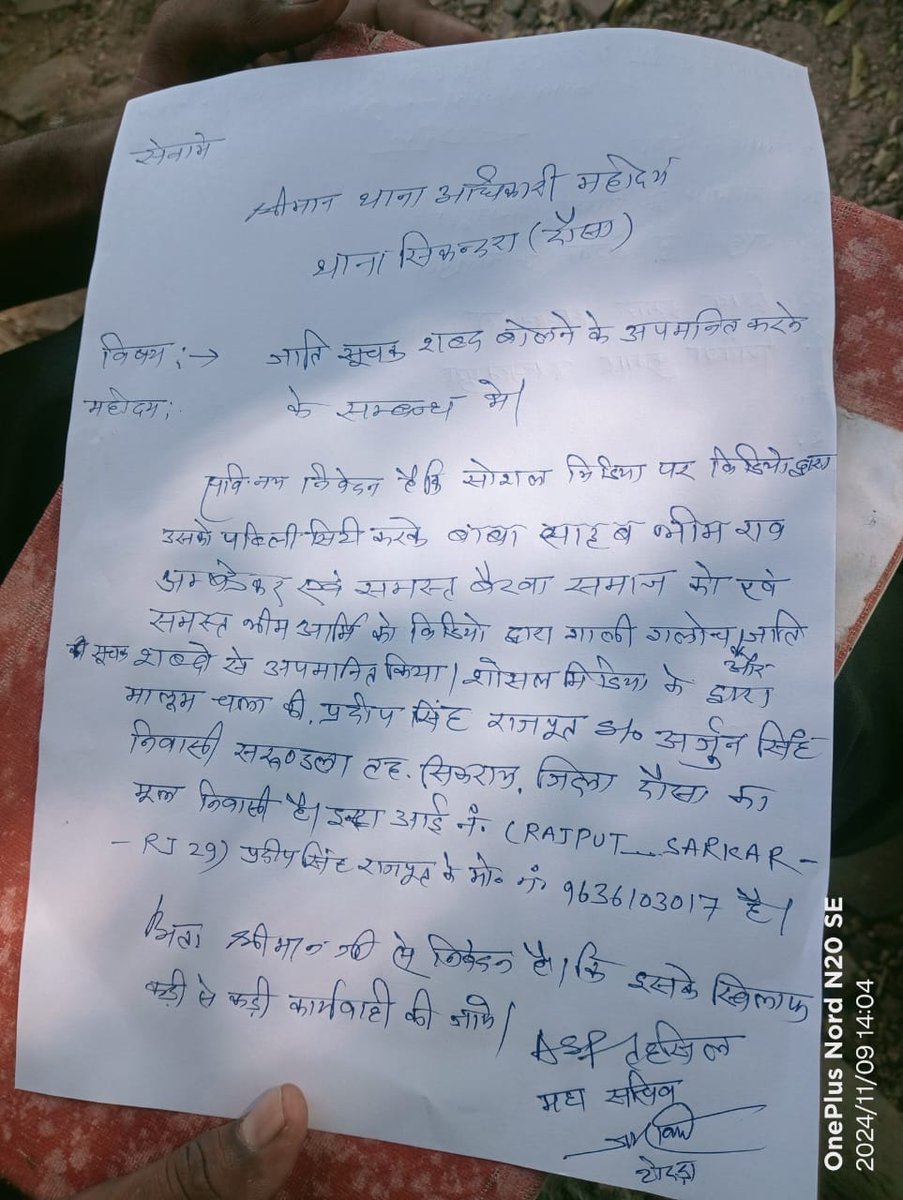 सेवामे
श्रीमान थाना अधिकारी महोदय
थाना सिकन्दरा (दौसा)
विषय :→ जाति सूचक शब्द बोलने के अपमानित करने
महोदय; के सम्बन्ध मे।
सविनय निवेदन है कि सोशल मिडिया पर विडियो द्वारा
उसको पब्लिसिटी करके बाबा साहब भीम राव
अम्बेडकर एवं समस्त बैरवा समाज को एवं
समस्त भीम आर्मि को विडियो द्वारा गाली गलोच, जाति
सूचक शब्दो से अपमानित किया। और शोसल मिडिया के द्वारा
मालूम चला की, प्रदीप सिंह राजपूत S/o अर्जुन सिंह
निवासी तह. सिकराय, जिला दौसा का
मूल निवासी है। इन्स्टा आई नं. (RAJPUT_SARKAR-
- RJ 29) प्रदीप सिंह राजपूत के मो० नं० 9636103017 है।
अतः श्रीमान जी से निवेदन है। कि इसके खिलाफ
कड़ी से कड़ी कार्यवाही की जावे।
ASP तहसिल
महा सचिव
OnePlus Nord N20 SE
2024/11/09 14:04